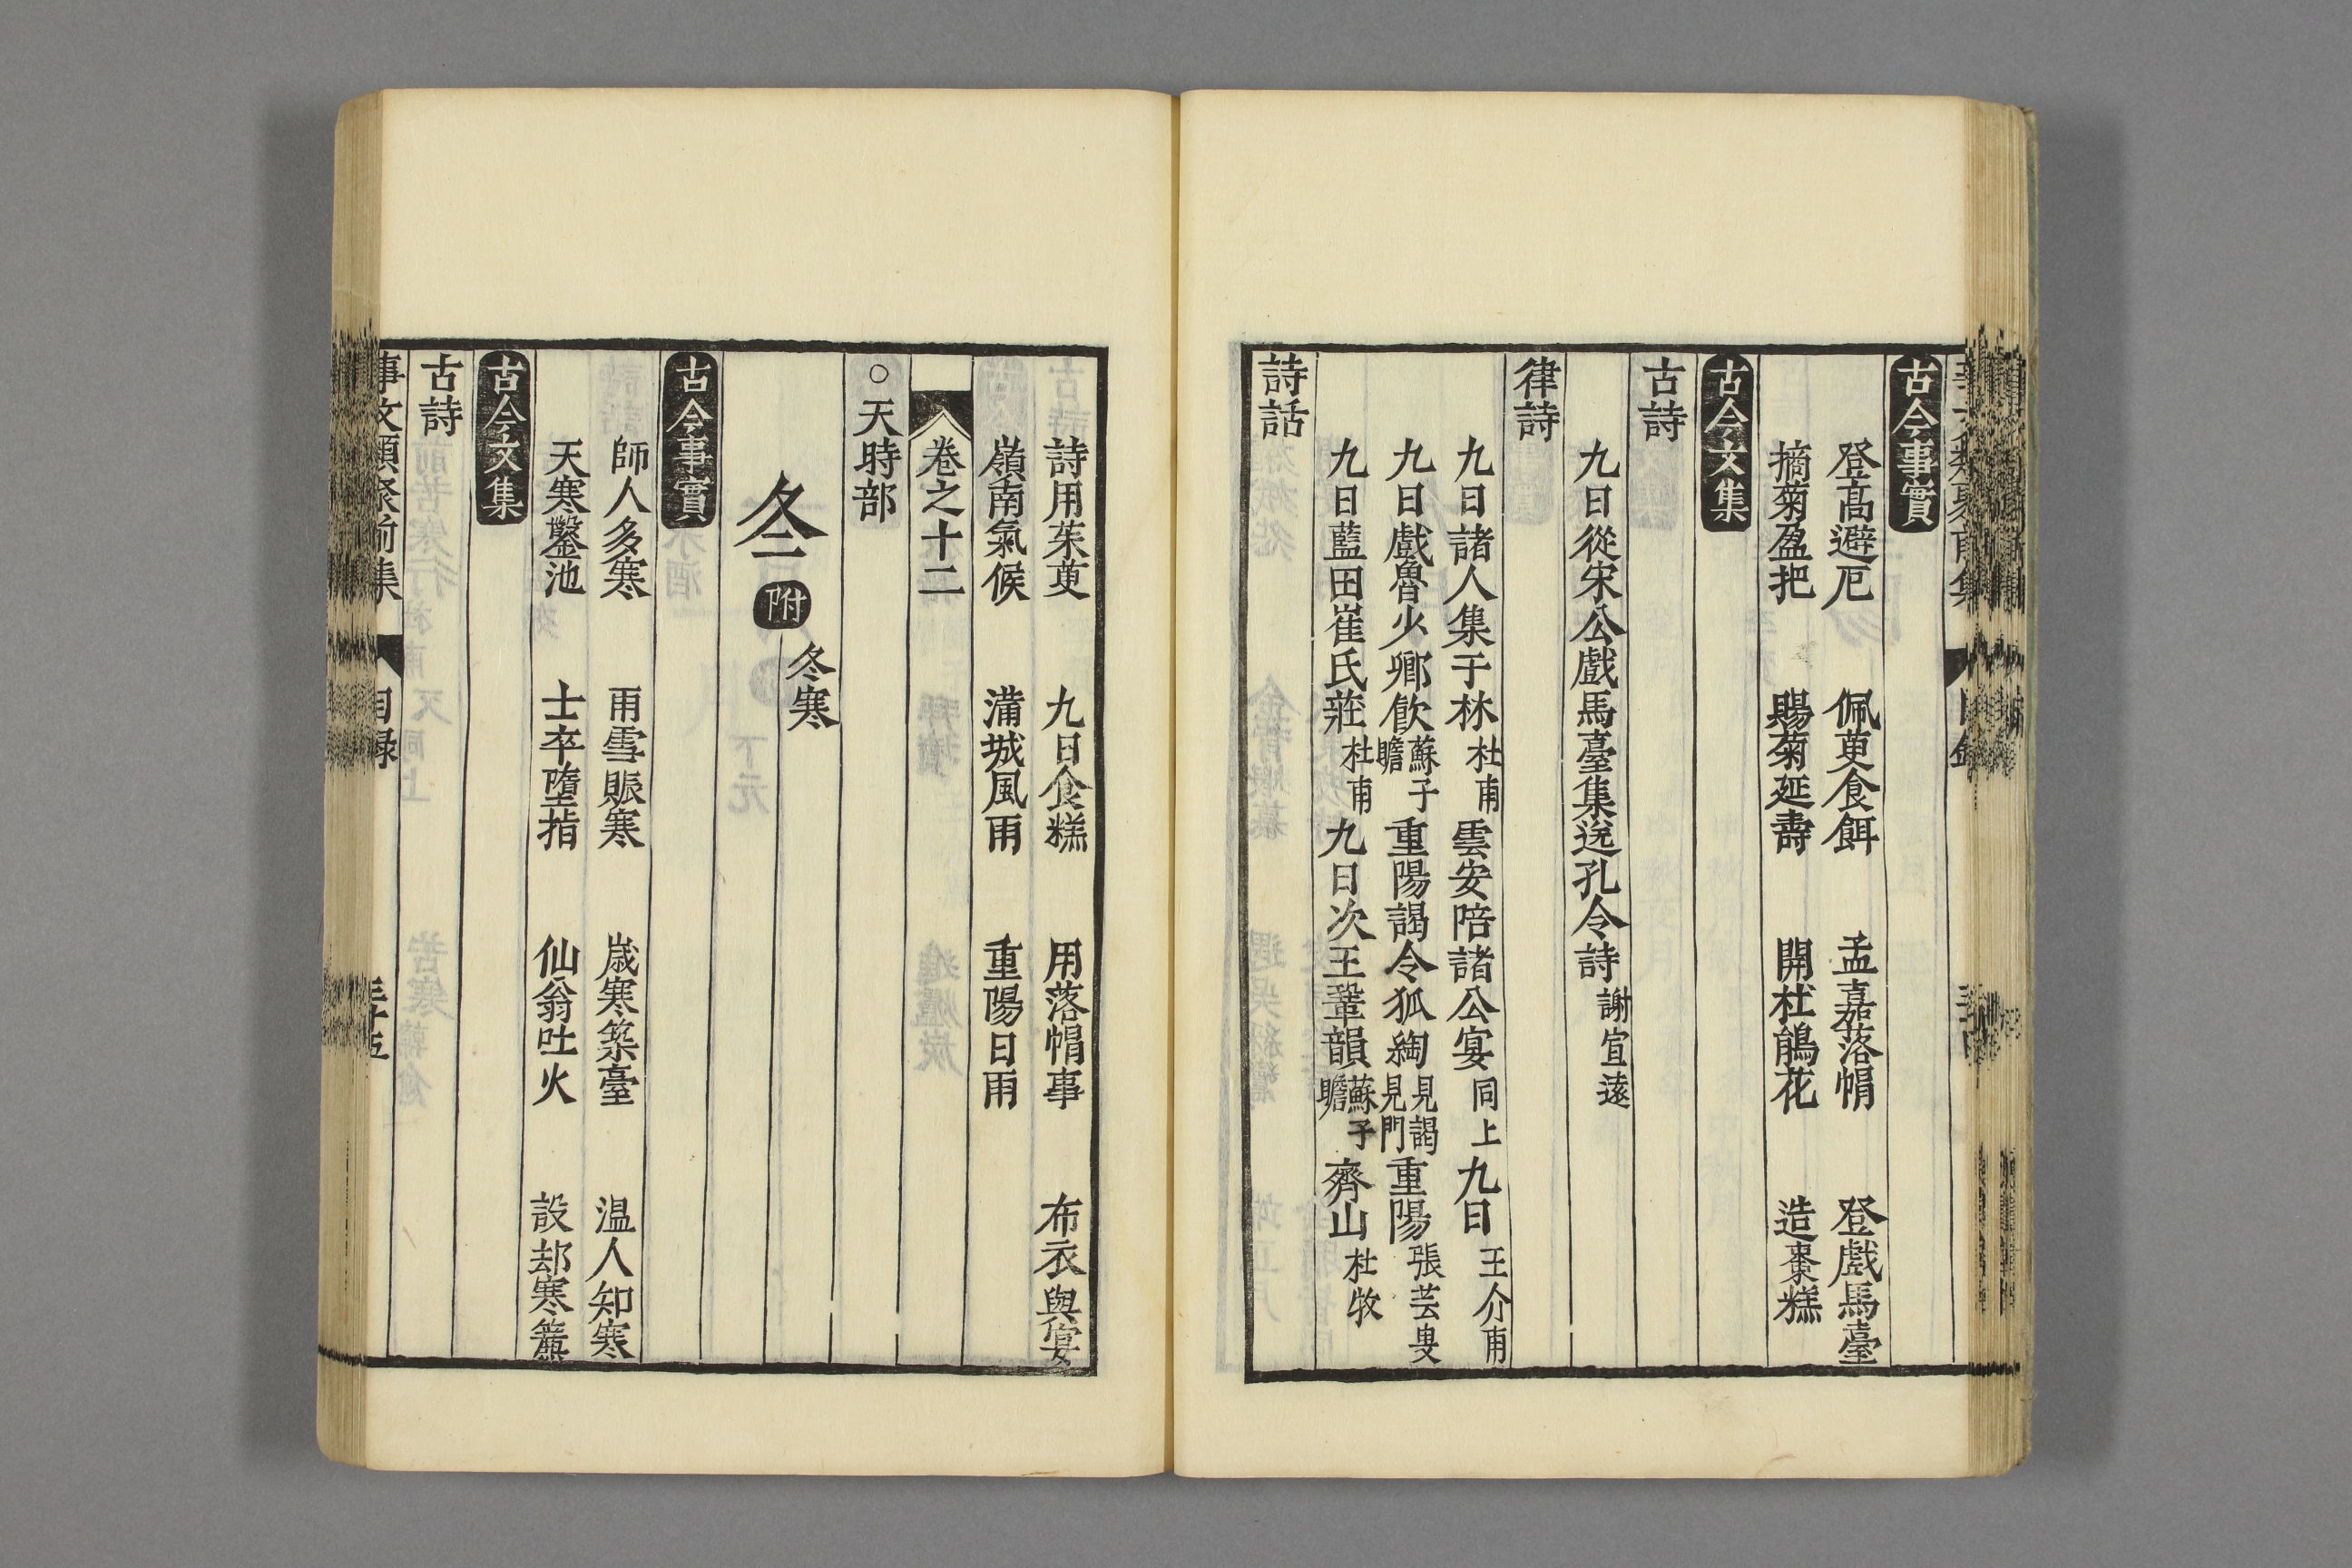 古今事實
登高避厄　佩萸食餌　孟嘉落帽　登戲馬臺
摘菊盈把　賜菊延壽　開杜鵑花　造棗糕
古今文集
古詩
九日從宋公戲馬臺集送孔令詩 謝宣遠
律詩
九日諸人集于林 杜甫 雲安陪諸公宴 同上 九日 王介甫
九日戲魯少卿飲 蘇子瞻 重陽謁令狐綯 見謁見門 重陽 張芸叟
九日藍田崔氏莊 杜甫 九日次王鞏韻 蘇子瞻 齊山 杜牧
詩話
詩用茱萸　九日食糕　用落帽事　布衣與宴
嶺南氣候　蒲城風雨　重陽日雨
卷之十二
○天時部
冬 附 冬寒
古今事實
師人多寒　雨雪賑寒　歲寒築臺　温人知寒
天寒鑿池　士卒墮指　仙翁吐火　設却寒簾
古今文集
古詩
事文類聚前集 目録 三十五